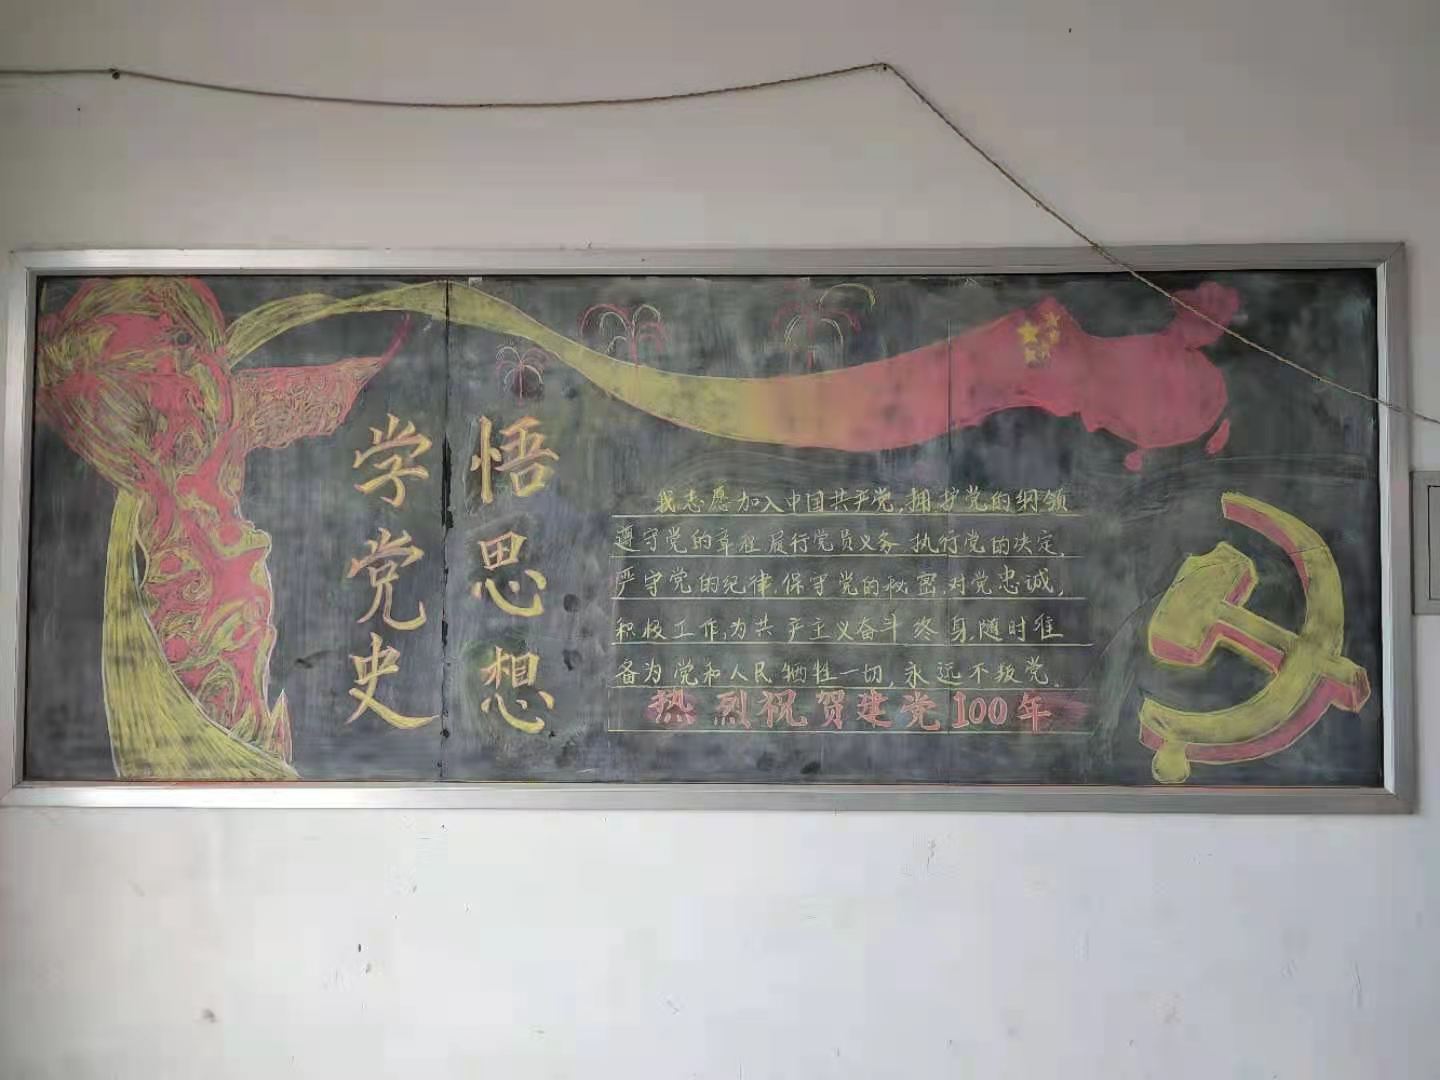 学党史
悟思想
我志愿加入中国共产党,拥护党的纲领
遵守党的章程履行党员义务 执行党的决定,
严守党的纪律,保守党的秘密,对党忠诚,
积极工作,为共产主义奋斗终身,随时准
备为党和人民牺牲一切,永远不叛党.
热烈祝贺建党100年